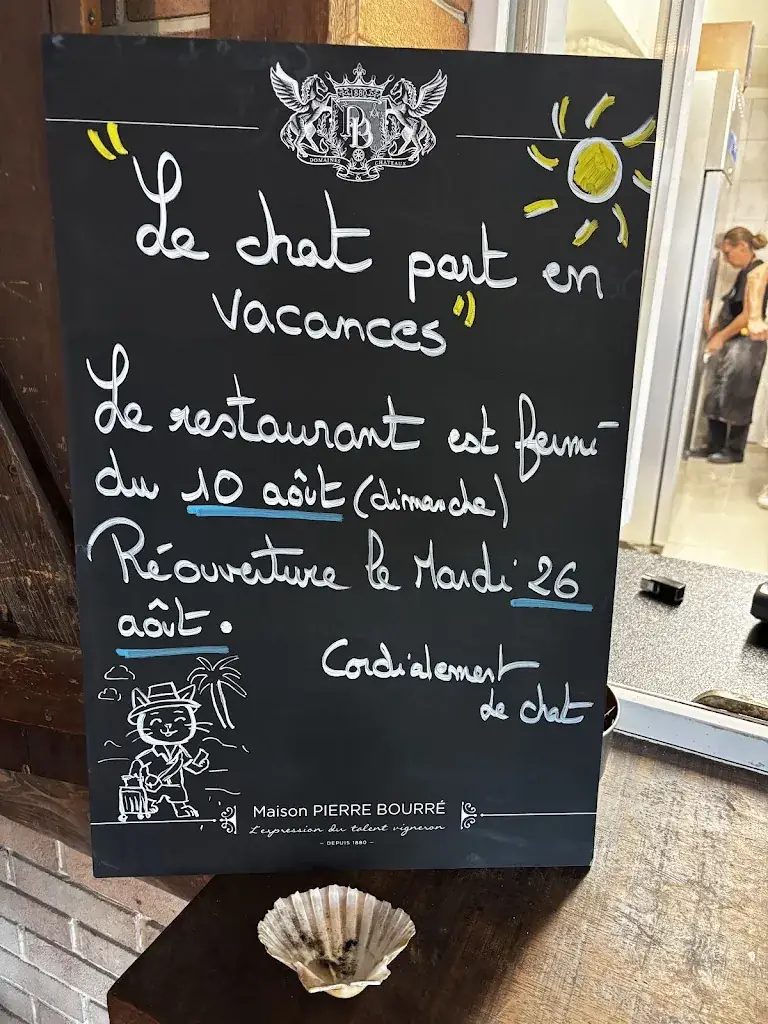 PB
DOMAINES & CHATEAUX
"Le chat part en
vacances"
Le restaurant est fermé
du 10 août (dimanche)
Réouverture le Mardi 26
août.
Cordialement
Le chat
Maison PIERRE BOURRÉ
L'expression du talent vigneron
– DEPUIS 1880 –